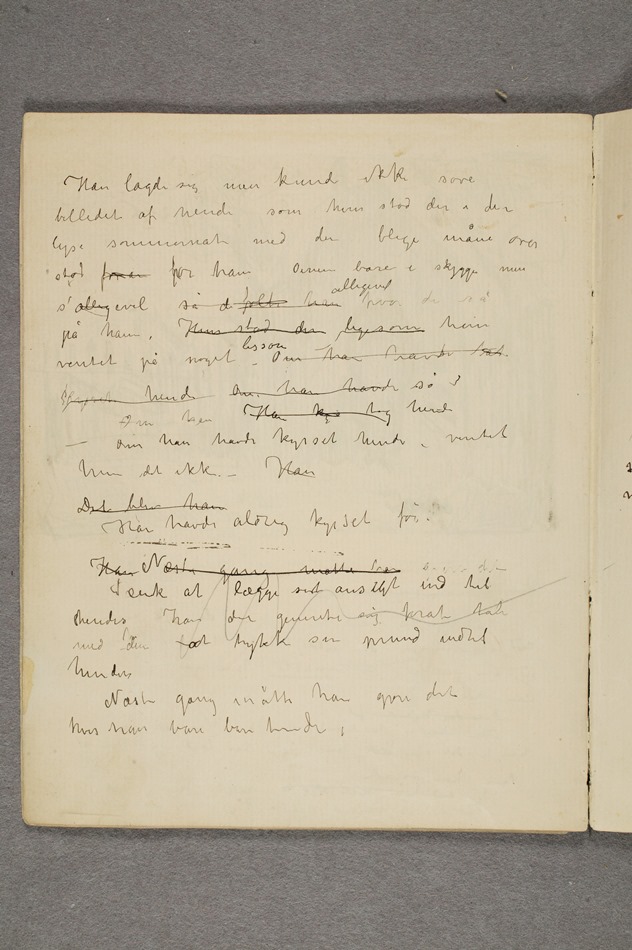 Han lagde sig men kunde ikke sove
billedet af hende som hun stod der i den
lyse sommernat med den blege måne over
stod foran for ham Øinene bare i skygge men
s' alligevel så de følte han alligevel hvor de så
på ham. Hun stod der ligesom hun
ventet på noget lissom Om han havde
kysset hende Om han havde så?
Om han Han kys tog hende
— om han havde kysset hende, ventet
hun det ikke. — Han
Det blev han
Han havde aldrig kysset før.
Han Næste gang måtte han
Tænk at lægge sit ansigt ind til
hendes
med at trykke sin mund indtil
hendes
Næste gang måtte han gøre det
hvis han bare ber hende,